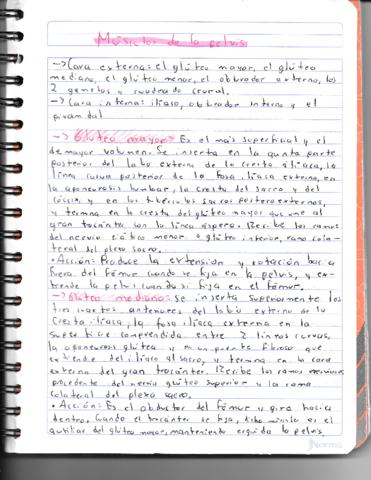 Músculos de la pelvis
→ Cara externa: el glúteo mayor, el glúteo
mediano, el glúteo menor, el obturador externo, los
2 gemelos y cuadrado crural.
→ Cara interna: ilíaso, obturador interno y el
piramidal
→ Glúteo mayor: Es el más superficial y el
de mayor volumen. Se inserta en la quinta parte
posterior del labio externo de la cresta ilíaca, la
línea curva posterior de la fosa ilíaca externa, en
la aponeurosis lumbar, la cresta del sacro y del
cóccix y en los tubérculos sacros posteroexternos,
y termina en la cresta del glúteo mayor que une al
gran trocánter con la línea áspera. Recibe los ramos
del nervio ciático menor o glúteo inferior, ramo cola-
teral del plexo sacro.
• Acción: Produce la extensión y rotación hacia
fuera del fémur cuando se fija en la pelvis, y ex-
tiende la pelvis cuando si fija en el fémur.
→ Glúteo mediano: Se inserta superiormente los
tres cuartos anteriores del labio externo de la
cresta ilíaca, la fosa ilíaca externa en la
superficie comprendida entre 2 líneas curvas,
la aponeurosis glútea y un puente fibroso que
extiende del ilíaco al sacro, y termina en la cara
externa del gran trocánter. Recibe los ramos nerviosos
procedente del nervio glúteo superior y la rama
colateral del plexo sacro.
• Acción: Es el abductor del fémur y gira hacia
dentro. Cuando el trocánter se fija, dicho músculo es el
auxiliar del glúteo mayor, manteniendo erguida la pelvis.
Norma